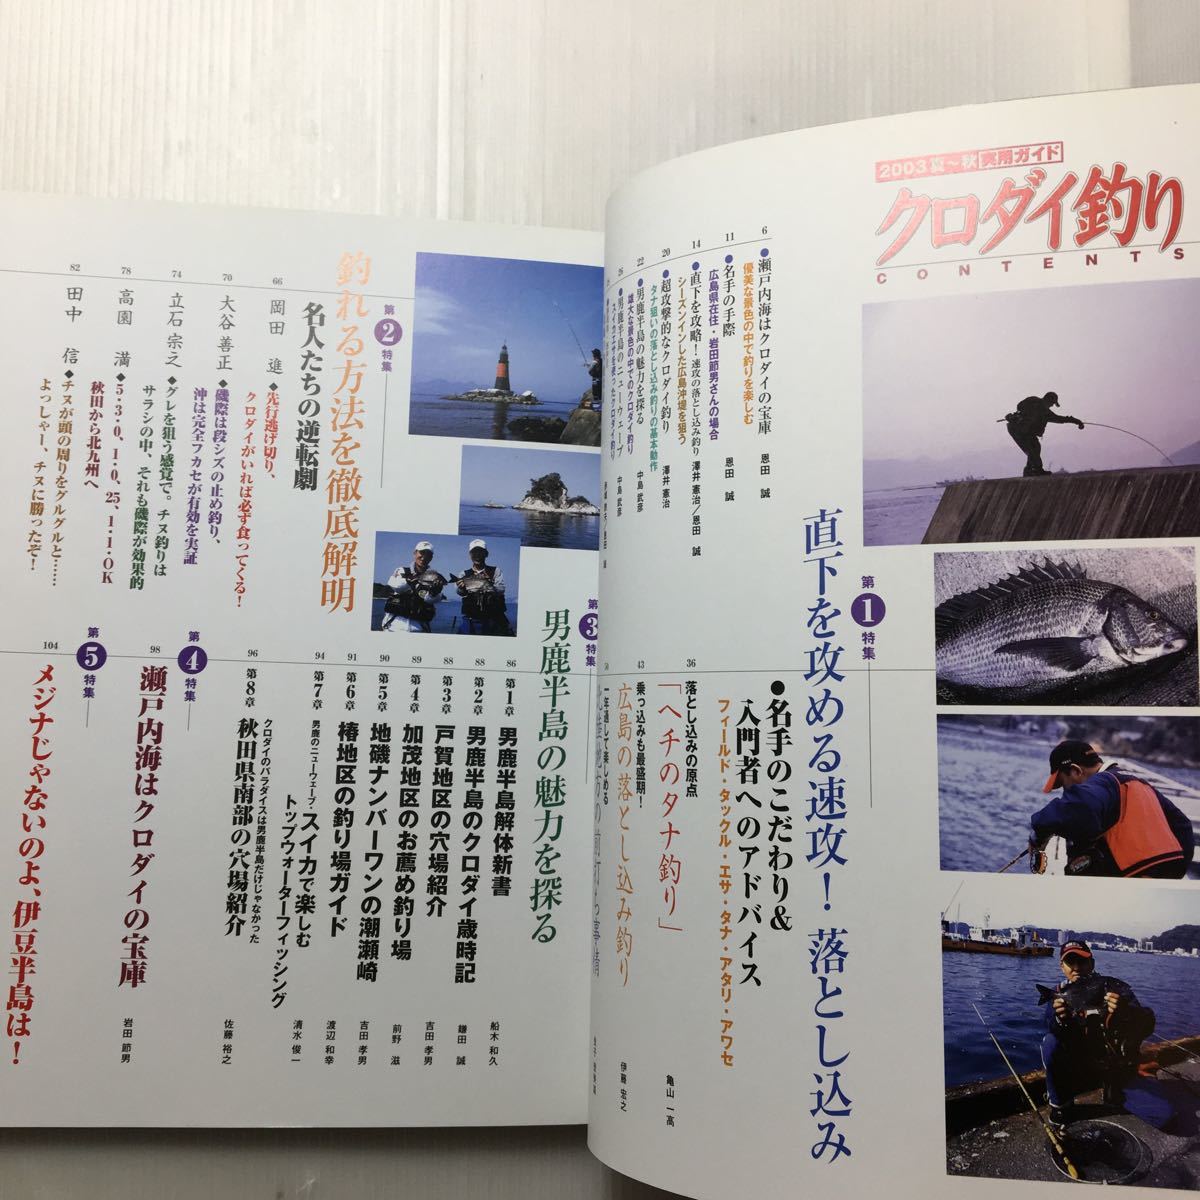 2003夏～秋実用ガイド
クロダイ釣り
CONTENTS
第1特集
直下を攻める速攻！落とし込み
6
●瀬戸内海はクロダイの宝庫
優美な景色の中で釣りを楽しむ
恩田 誠
11
●名手の手際
広島県在住・岩田節男さんの場合
恩田 誠
14
●直下を攻略！速攻の落とし込み釣り
シーズンインした広島沖堤を狙う
澤井憲治／恩田 誠
20
●超攻撃的なクロダイ釣り
タナ狙いの落とし込み釣りの基本動作
澤井憲治
22
●男鹿半島の魅力を探る
雄大な景色の中でのクロダイ釣り
中島武彦
26
●男鹿半島のニューウェーブ
スイカエサを使ったクロダイ釣り
中島武彦
●名手のこだわり＆
入門者へのアドバイス
フィールド・タックル・エサ・タナ・アタリ・アワセ
36
落とし込みの原点
「ヘチのタナ釣り」
亀山一高
43
乗っ込みも最盛期！
広島の落とし込み釣り
伊藤宏之
50
一年通して楽しめる
第2特集
釣れる方法を徹底解明
名人たちの逆転劇
66
岡田 進
◆先行逃げ切り、
クロダイがいれば必ず食ってくる！
70
大谷善正
◆磯際は段シズの止め釣り、
沖は完全フカセが有効を実証
74
立石宗之
◆グレを狙う感覚で。チヌ釣りは
サラシの中、それも磯際が効果的
78
高園 満
◆5・3・0、1・0、25、1・1・OK
秋田から北九州へ
82
田中 信
◆チヌが頭の周りをグルグルと……
よっしゃー、チヌに勝ったぞ！
第3特集
男鹿半島の魅力を探る
86
第1章
男鹿半島解体新書
船木和久
88
第2章
男鹿半島のクロダイ歳時記
鎌田 誠
88
第3章
戸賀地区の穴場紹介
吉田孝男
89
第4章
加茂地区のお薦め釣り場
前野 滋
90
第5章
地磯ナンバーワンの潮瀬崎
吉田孝男
91
第6章
椿地区の釣り場ガイド
渡辺和幸
94
第7章
男鹿のニューウェーブ・スイカで楽しむ
トップウォーターフィッシング
清水俊一
96
第8章
クロダイのパラダイスは男鹿半島だけじゃなかった
秋田県南部の穴場紹介
佐藤裕之
第4特集
98
瀬戸内海はクロダイの宝庫
岩田節男
第5特集
104
メジナじゃないのよ、伊豆半島は！